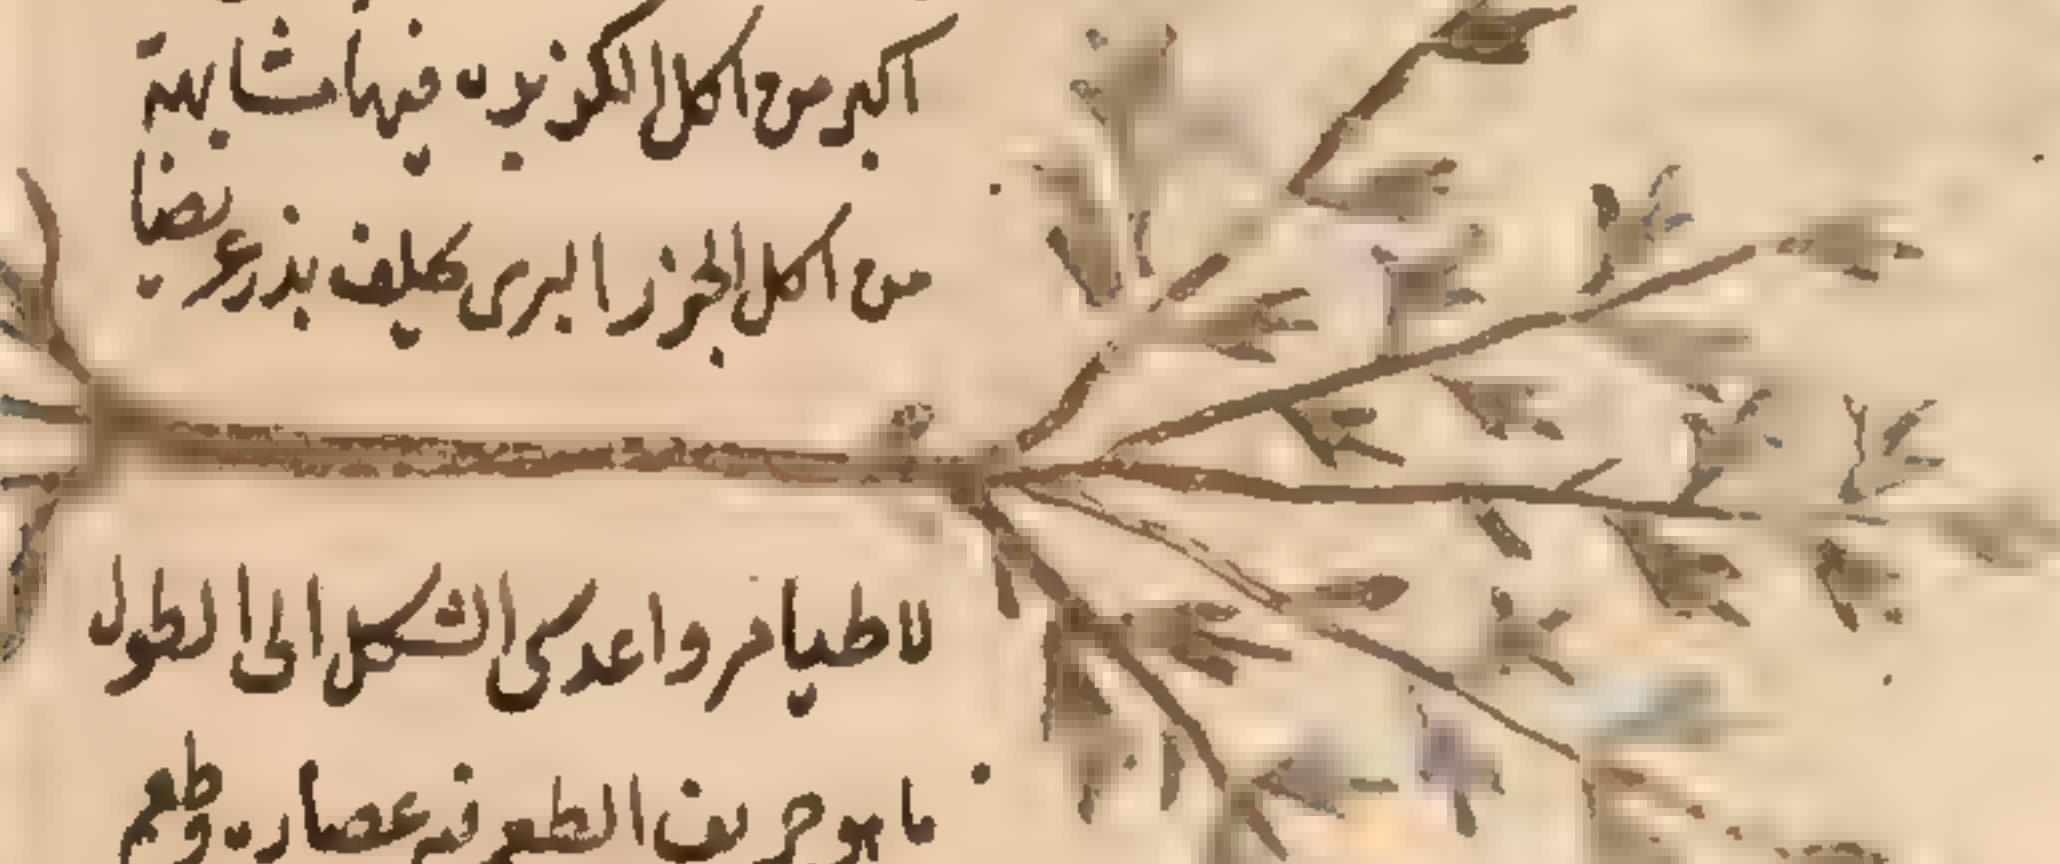 اكبر من اكلل الكزبره فيها مشابهة
من اكلل الجزر البرى كليف بذر عريضا
لاطيا فر واعد كى الشكل الى الطول
ما هو حريف الطعم فيه عصاره وطعم